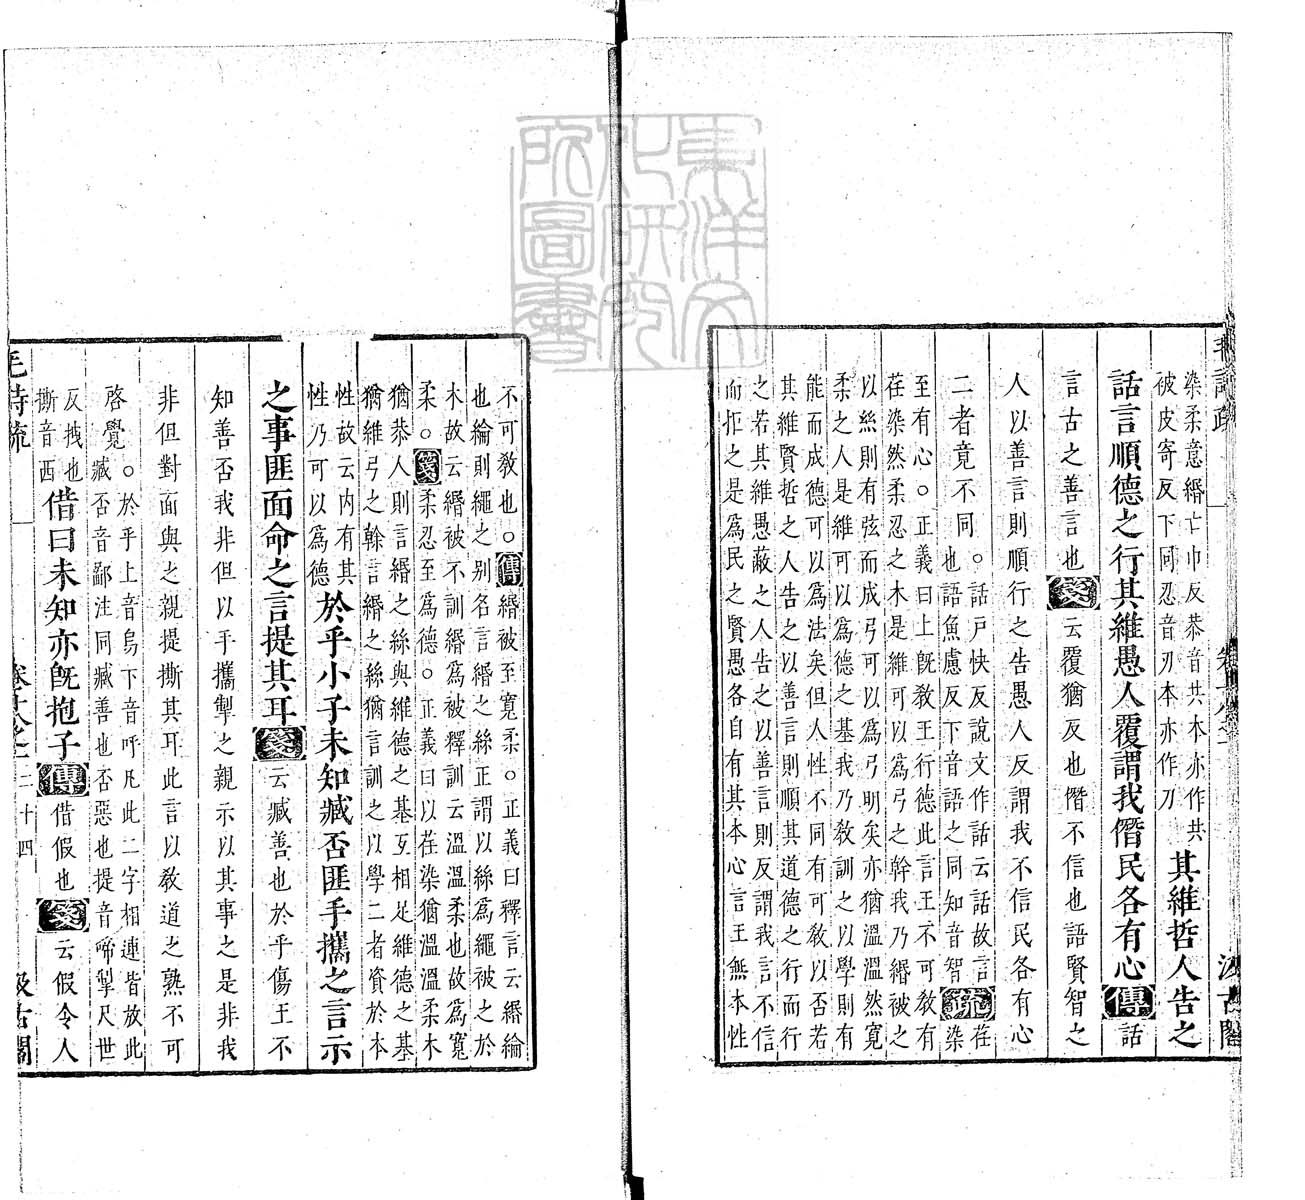 染柔意緡亡巾反恭音共本亦作共
被皮寄反下同忍音刃本亦作刀
其維哲人告之
話言順德之行其維愚人覆謂我僭民各有心傳話
言古之善言也箋云覆猶反也僭不信也語賢智之
人以善言則順行之告愚人反謂我不信民各有心
二者竟不同
。話戶快反說文作話云話故言
也語魚慮反下音語之同知音智
疏
荏
染
至有心。正義曰上既教王行德此言王不可教有
荏染然柔忍之木是維可以為弓之幹我乃緡被之
以絲則有弦而成弓可以為弓明矣亦猶溫溫然寬
柔之人是維可以為德之基我乃教訓之以學則有
能而成德可以為法矣但人性不同有可教以否若
其維賢哲之人告之以善言則順其道德之行而行
之若其維愚蔽之人告之以善言則反謂我言不信
而拒之是為民之賢愚各自有其本心言王無本性
不可教也。傳緡被至寬柔。正義曰釋言云緡綸
也綸則繩之別名言緡之絲正謂以絲為繩被之於
木故云緡被不訓緡為被釋訓云溫溫柔也故為寬
柔。箋柔忍至為德。正義曰以荏染猶溫溫柔木
猶恭人則言緡之絲與維德之基互相足維德之基
猶維弓之幹言緡之絲猶言訓之以學二者資於本
性故云內有其
性乃可以為德
於乎小子未知臧否匪手攜之言示
之事匪面命之言提其耳箋云臧善也於乎傷王不
知善否我非但以手攜掣之親示以其事之是非我
非但對面與之親提撕其耳此言以教道之熟不可
啓覺
。於乎上音烏下音呼凡此二字相連皆放此
臧否音鄙注同臧善也否惡也提音啼掣尺世
反拽也
撕音西
借曰未知亦既抱子傳借假也箋云假令人
毛詩疏
卷十八之一
二十四
汲古閣